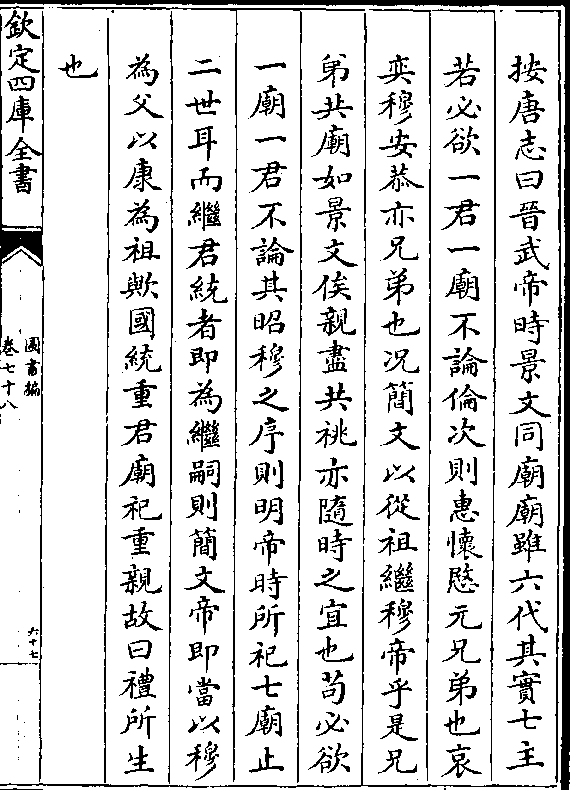 按唐志曰晉武帝時景文同廟廟雖六代其實七主
若必欲一君一廟不論倫次則惠懷愍元兄弟也哀
奕穆安恭亦兄弟也况簡文以從祖繼穆帝乎是兄
弟共廟如景文俟親盡共祧亦隨時之宜也苟必欲
一廟一君不論其昭穆之序則明帝時所祀七廟止
二世耳而繼君統者即為繼嗣則簡文帝即當以穆
為父以康為祖歟國統重君廟祀重親故曰禮所生
也
欽定四庫全書
圖書編
卷七十八
六十七